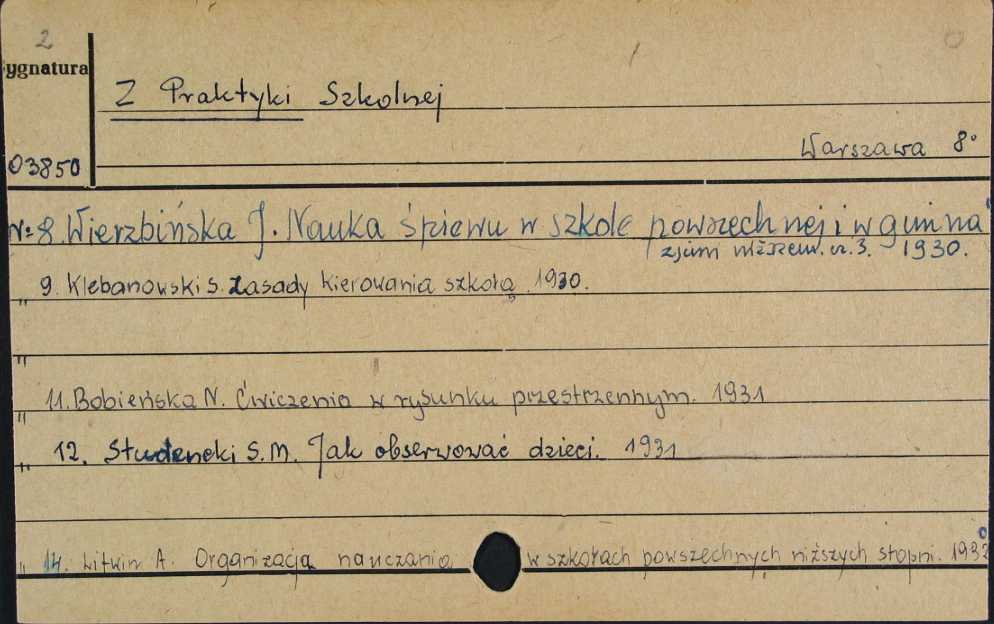 2
Sygnatura
Z Praktyki Szkolnej
Warszawa 8°
03850
№ 8. Wierzbińska J. Nauka śpiewu w szkole powszechnej i w gimna
zjum niższem. cz. 3. 1930.
" 9. Klebanowski S. Zasady kierowania szkołą. 1930.
"
" 11. Bobieńska N. Ćwiczenia w rysunku przestrzennym. 1931
" 12. Studencki S.M. Jak obserwować dzieci. 1931
" 14. Litwin A. Organizacja nauczania w szkołach powszechnych niższych stopni. 1932